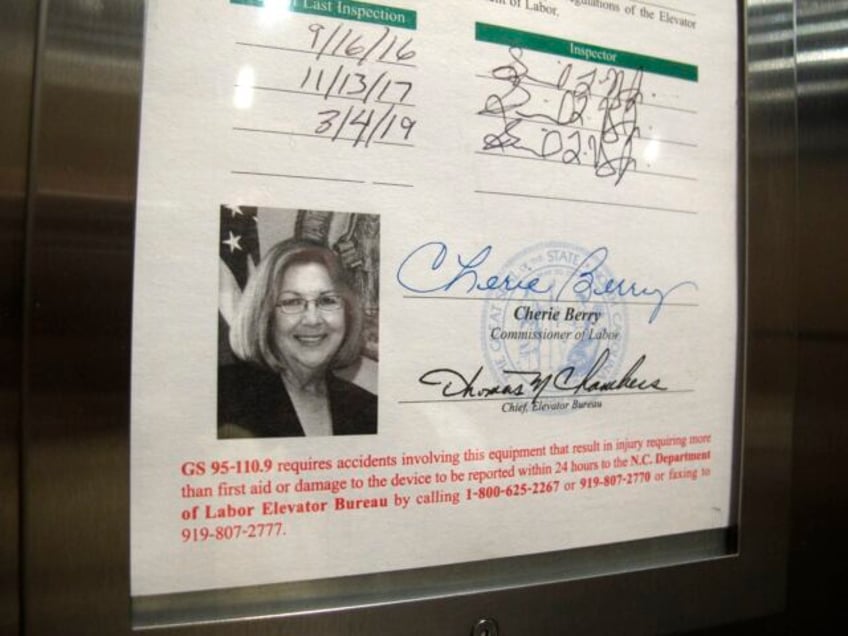 gulations of the Elevator
of Labor.
Last Inspection
Inspector
9/16/16
11/13/17
3/4/19
THE GREAT SEAL OF THE STATE
Cherie Berry
Cherie Berry
Commissioner of Labor
Thomas N Chambers
Chief, Elevator Bureau
GS 95-110.9 requires accidents involving this equipment that result in injury requiring more
than first aid or damage to the device to be reported within 24 hours to the N.C. Department
of Labor Elevator Bureau by calling 1-800-625-2267 or 919-807-2770 or faxing to
919-807-2777.